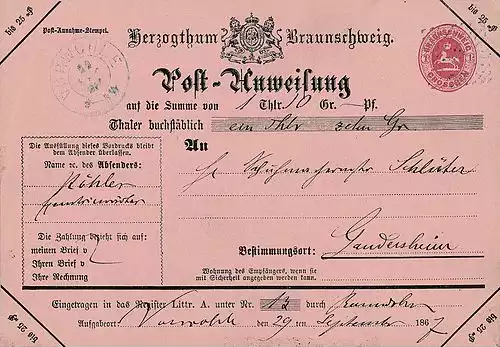 bis 25 Thlr
bis 25 Thlr
Post-Annahme-Stempel.
Herzogthum Braunschweig.
BRAUNSCHWEIG
GROSCHEN
Post-Anweisung
auf die Summe von 1 Thlr. 10 Gr. – Pf.
Thaler buchstäblich ein Thlr zehn Gr
Die Ausfüllung dieses Vordrucks bleibt
dem Absender überlassen.
Name ec. des Absenders:
Köhler
An
Schuhmachermstr Schlüter
Die Zahlung bezieht sich auf:
meinen Brief v
Ihren Brief v
Ihre Rechnung
Bestimmungsort: Gandersheim
Wohnung des Empfängers, wenn sie
mit Sicherheit angegeben werden kann.
Eingetragen in das Register Littr. A. unter Nr. 13 durch
Aufgabeort Vorwohle den 29 ten September 1867
bis 25 Thlr
bis 25 Thlr